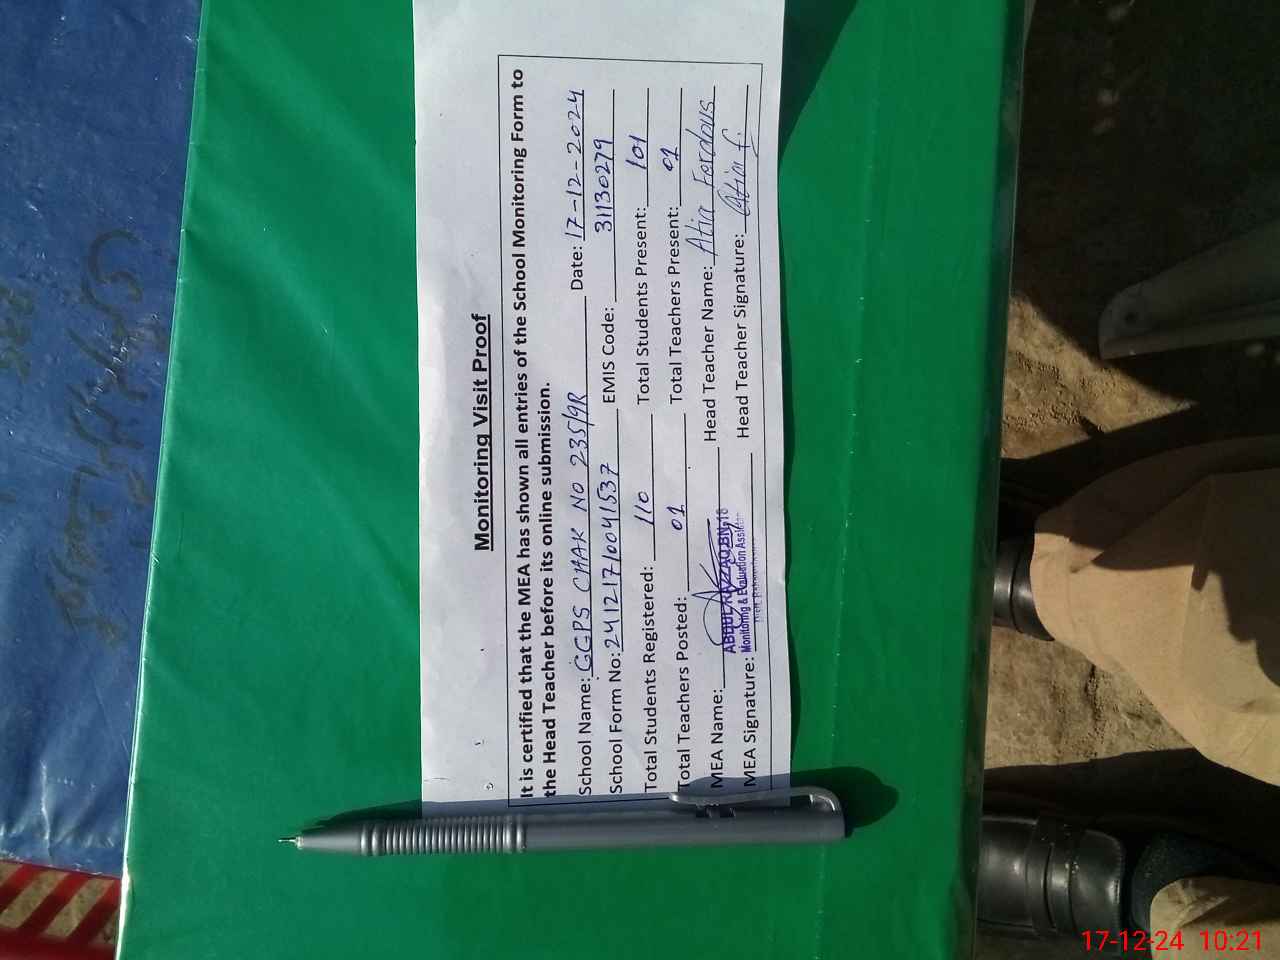 Monitoring Visit Proof
It is certified that the MEA has shown all entries of the School Monitoring Form to
the Head Teacher before its online submission.
School Name: GGPS CHAK NO 235/9R Date: 17-12-2024
School Form No: 24121710041537 EMIS Code: 31130279
Total Students Registered: 110 Total Students Present: 101
Total Teachers Posted: 01 Total Teachers Present: 01
MEA Name: Head Teacher Name: Atia Ferdous
ABDUL RAZZAQ
Monitoring & Evaluation
MEA Signature: Head Teacher Signature: Atia f.
17-12-24 10:21